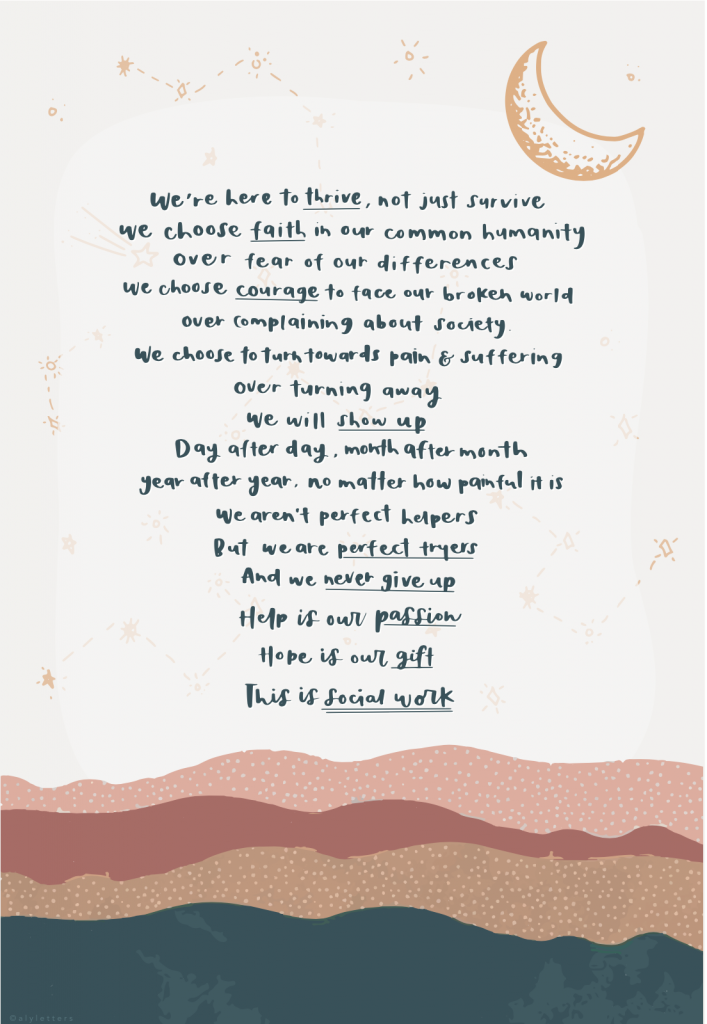 We're here to thrive, not just survive
we choose faith in our common humanity
over fear of our differences
we choose courage to face our broken world
over complaining about society.
We choose to turn towards pain & suffering
over turning away
We will show up
Day after day, month after month
year after year, no matter how painful it is
We aren't perfect helpers
But we are perfect tryers
And we never give up
Help is our passion
Hope is our gift
This is social work
©alyletters